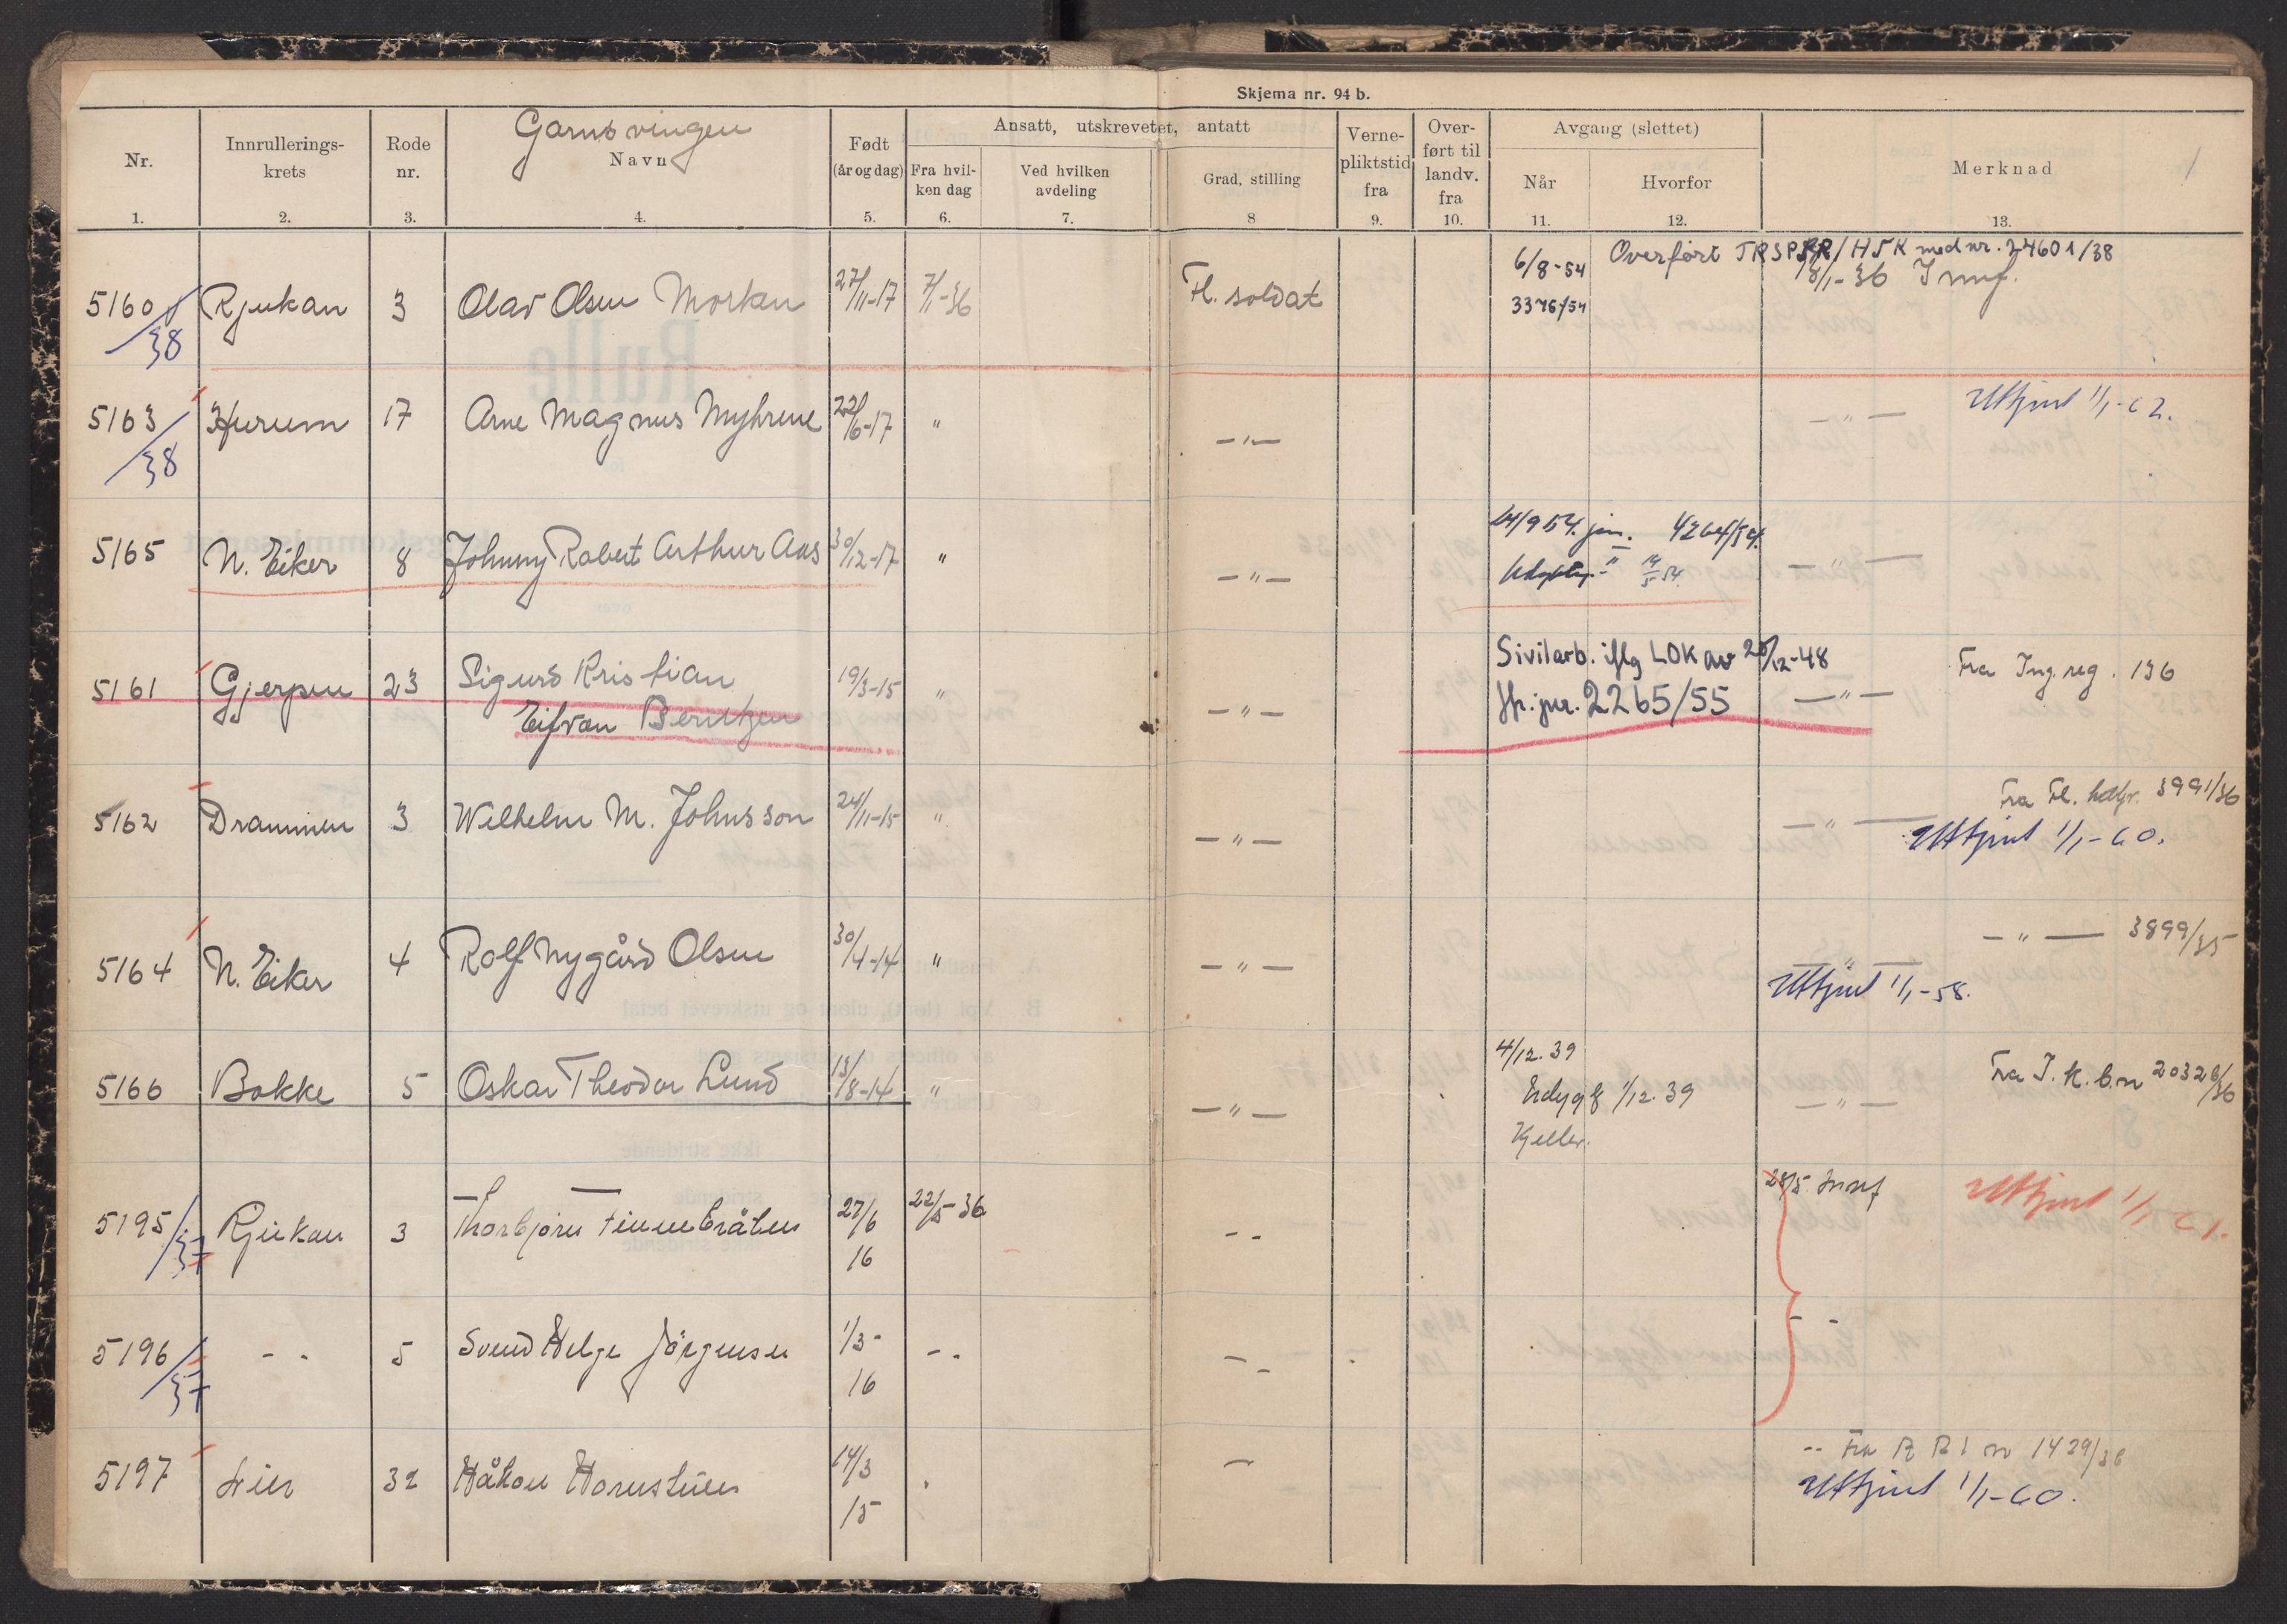 Skjema nr. 94 b.
Garnsvingen
Nr. Innrullerings-krets Rode nr. Navn Født (år og dag) Ansatt, utskrevetet, antatt Verne-pliktstid fra Over-ført til landv. fra Avgang (slettet) Merknad
Fra hvil-ken dag Ved hvilken avdeling Grad, stilling Når Hvorfor
1. 2. 3. 4. 5. 6. 7. 8 9. 10. 11. 12. 13.
6/8-54 Overført TRSPRR/HSK med nr. 24601/38
5160/38 Rjukan 3 Olav Olsen Morken 27/11-17 7/1-36 Fl. soldat 3376/54 8/1-36 Innf.
5163/38 Hurum 17 Arne Magnus Myhrene 22/6-17 " —"— —"— Uttjent 1/1-62.
14/9 54. jnr. 4264/54.
5165 N. Eiker 8 Johnny Robert Arthur Aas 30/12-17 " —"— —"—
Sivilarb. iflg LOK av 28/12-48
5161 Gjerpen 23 Sigurd Kristian 19/3-15 " —"— jfr. jnr. 2265/55 —"— Fra Ing. reg. 136
Eifvan Berntzen
Fra Fl. 3991/36
5162 Drammen 3 Wilhelm M. Johnsson 24/11-15 " —"— —"—
Uttjent 1/1-60.
5164 N. Eiker 4 Rolf Nygård Olsen 30/4-14 " —"— —"— —"— 3899/35
Uttjent 1/1-58.
4/12.39
5166 Bokke 5 Oskar Theodor Lund 13/8-14 " —"— 1/12.39 —"— Fra I.R. 6. nr 20328/36
Kjeller.
5195/37 Rjukan 3 Thorbjørn Finnebråten 27/6 16 22/5-36 -- 28/5 Innf Uttjent 1/1-61.
5196/37 -- 5 Svend Helge Jörgensen 1/3-16 -- -- --
5197 Lier 32 Håkon Hornstuen 14/3 15 -- Fra 1429/36
Uttjent 1/1-60.